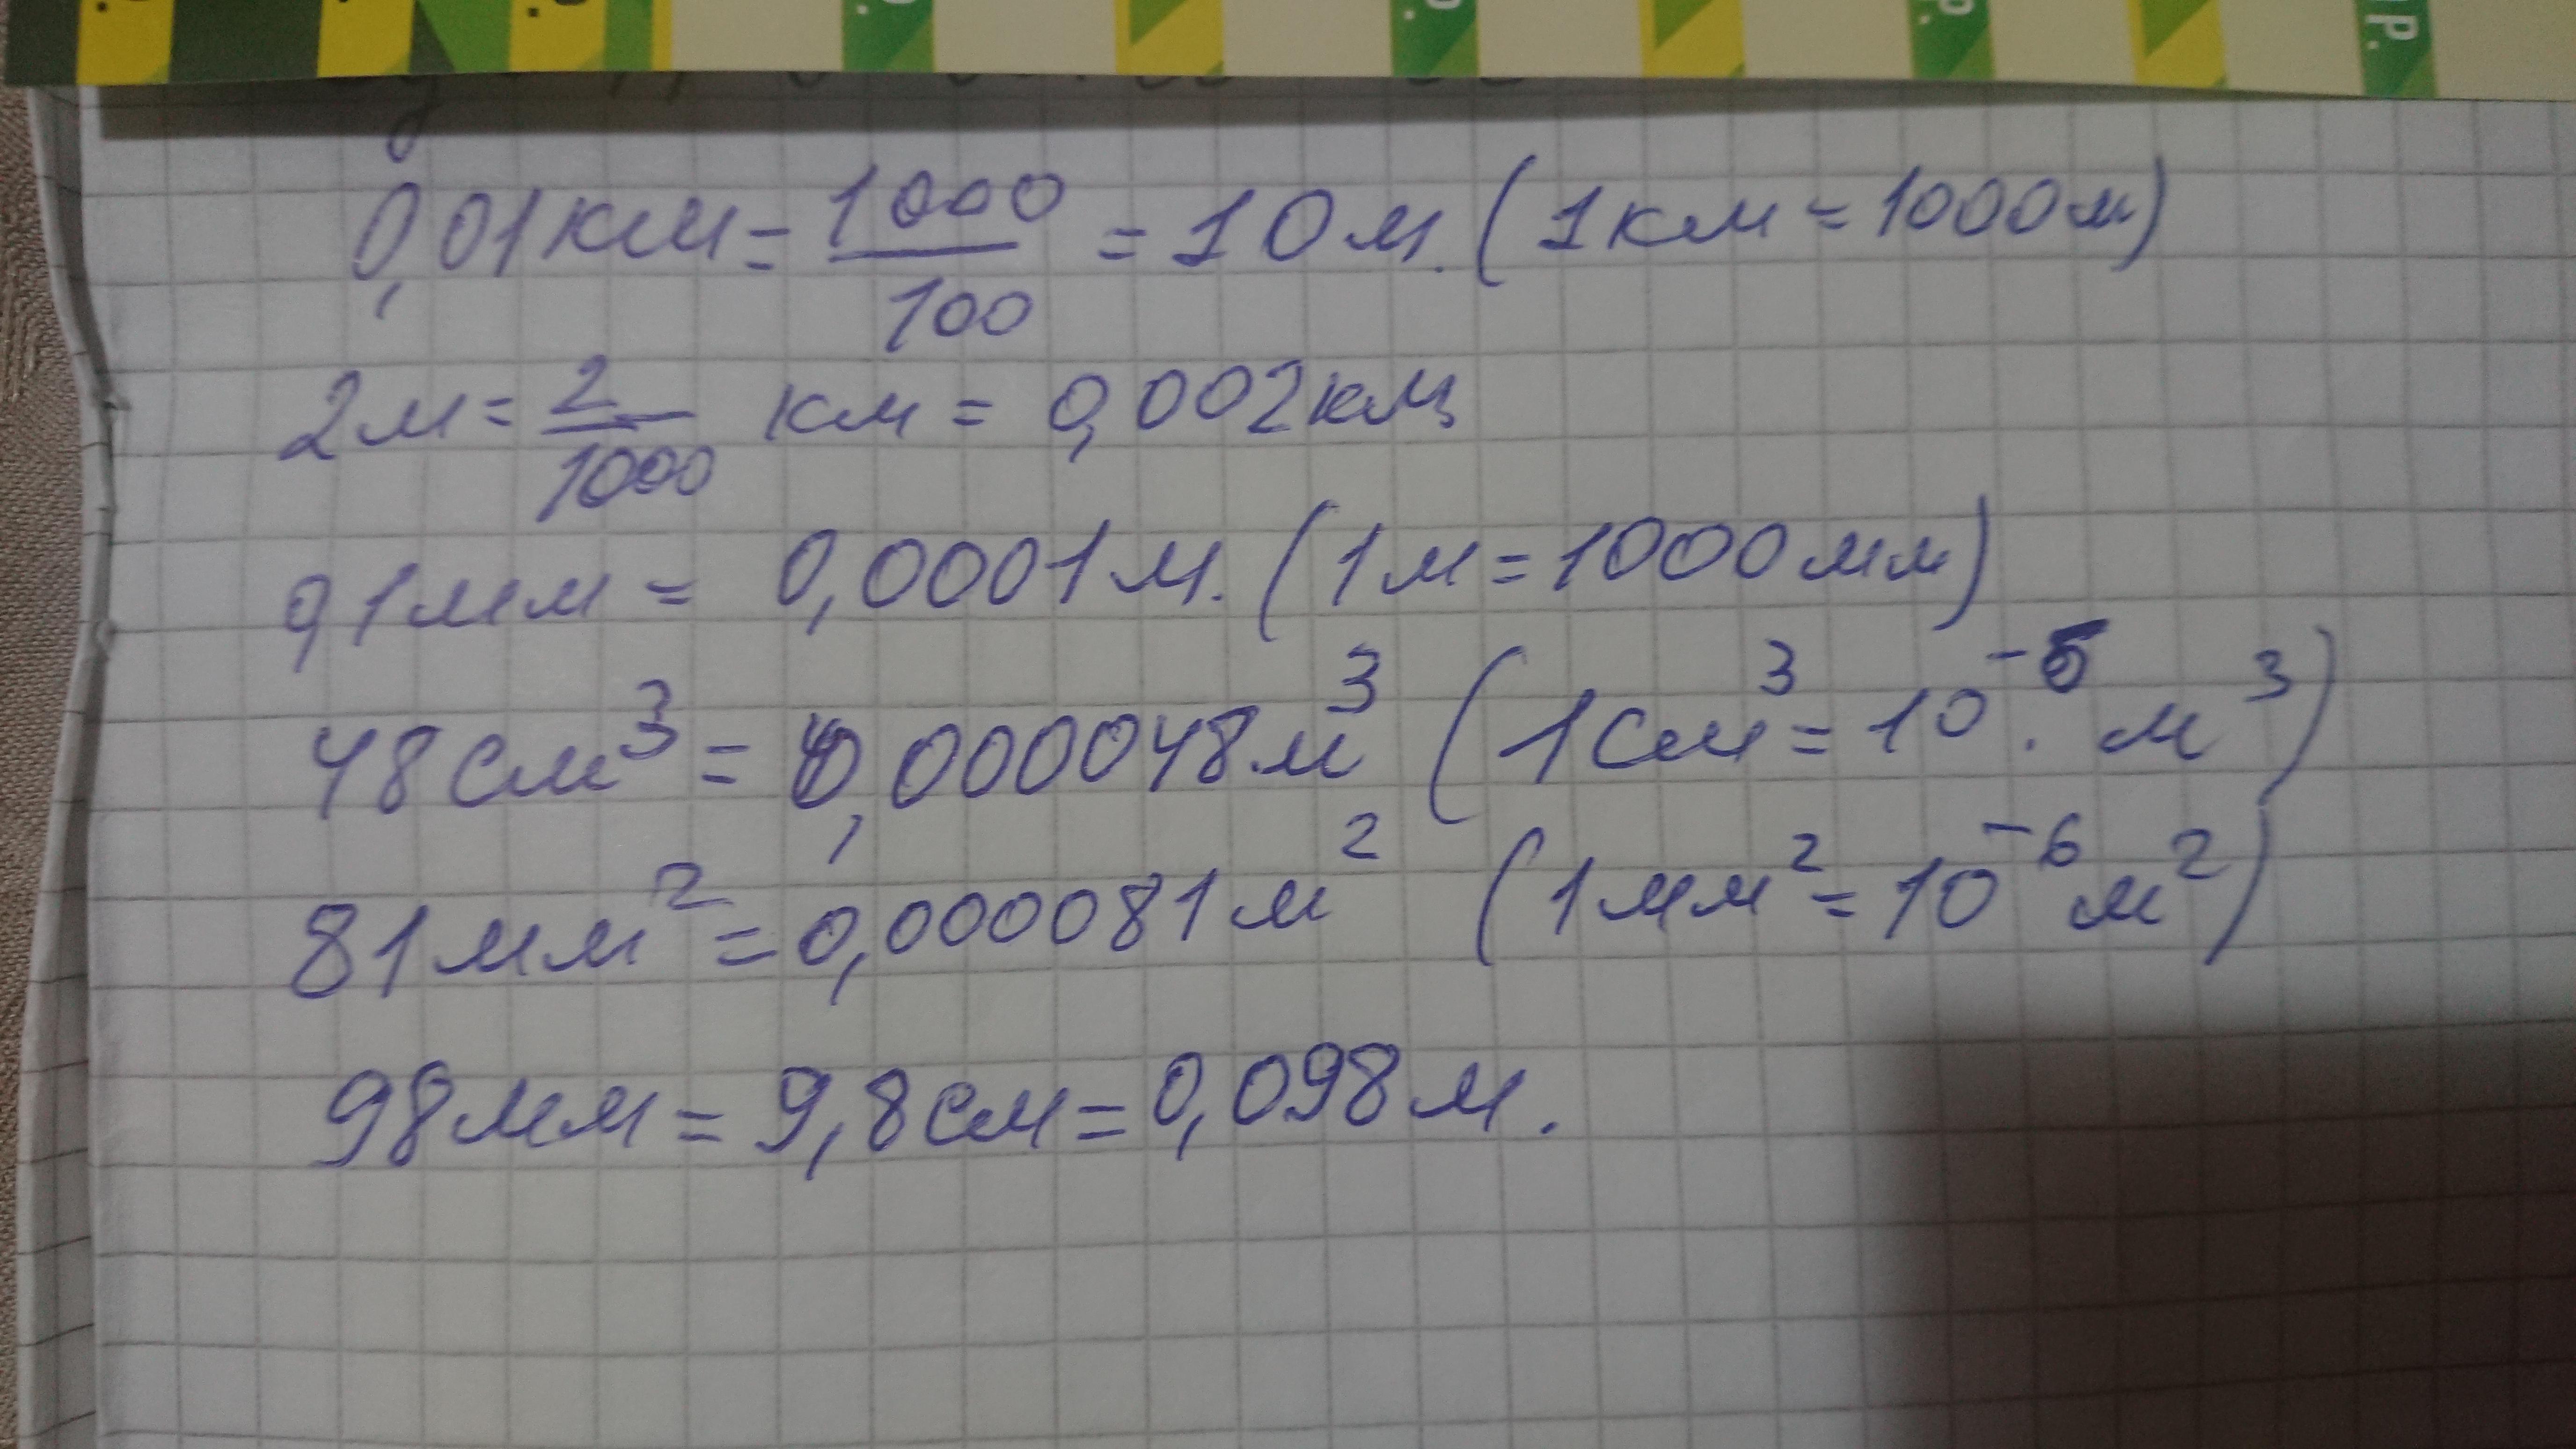 р. р. р. р. р. пр.
0,01км = 1000/100 = 10м. (1км = 1000м)
2м = 2/1000 км = 0,002км
0,1мм = 0,0001м. (1м = 1000мм)
48см³ = 0,000048м³ (1см³ = 10⁻⁶ · м³)
81мм² = 0,000081м² (1мм² = 10⁻⁶ м²)
98мм = 9,8см = 0,098м.